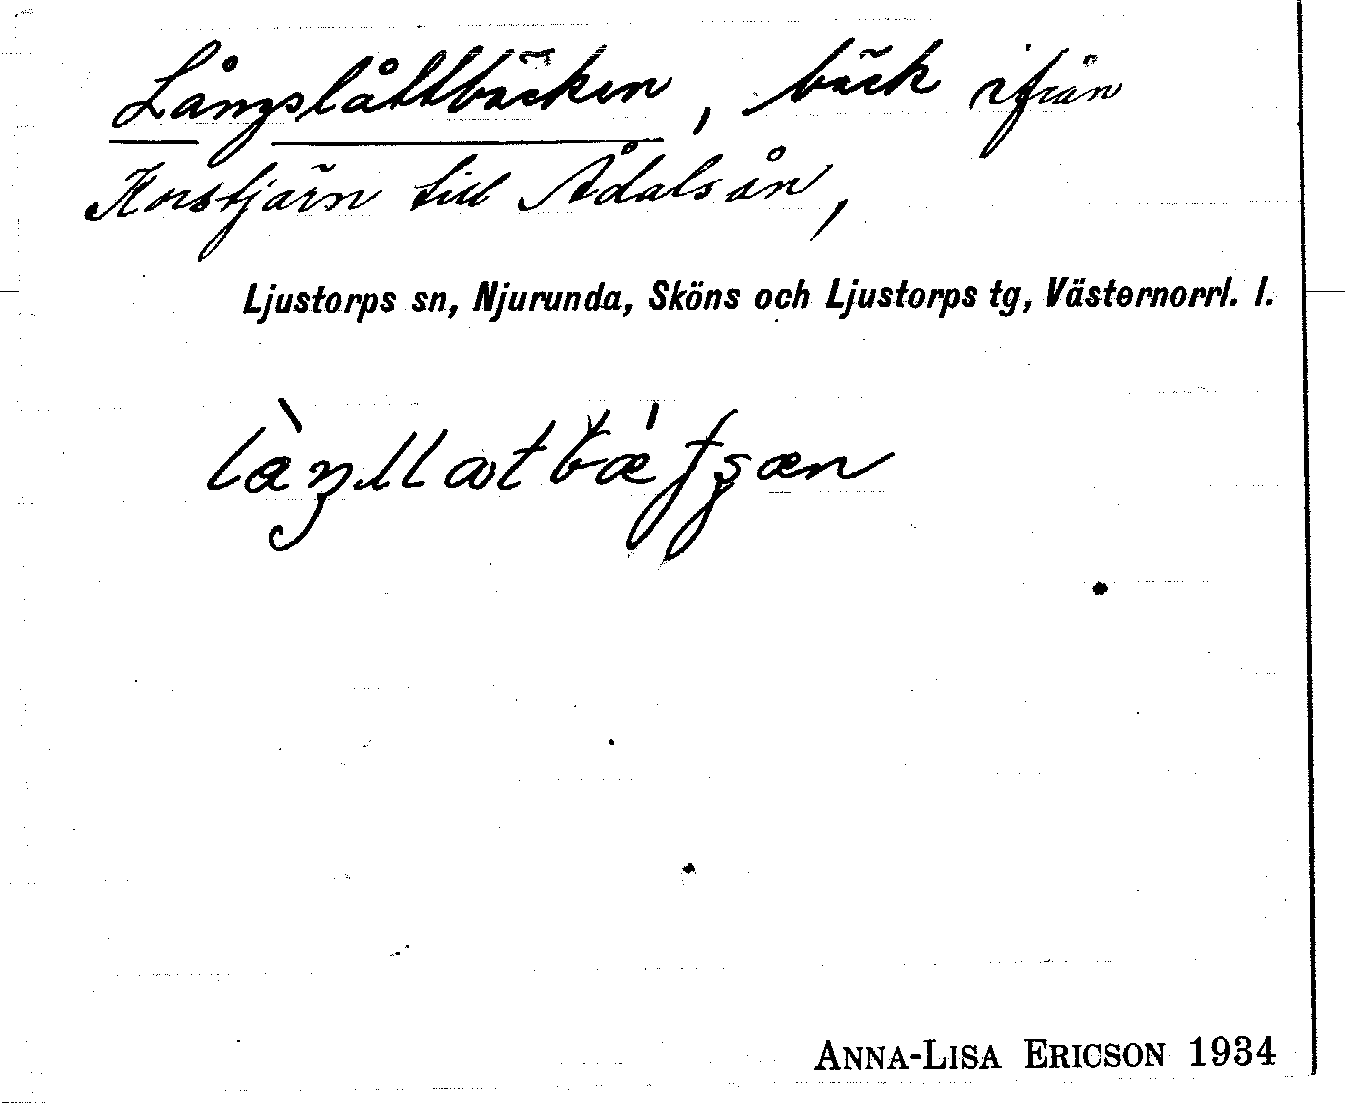 Långslåttbäcken, bäck ifrån
Korstjärn till Ådalsån,
Ljustorps sn, Njurunda, Sköns och Ljustorps tg, Västernorrl. l.
ANNA-LISA ERICSON 1934